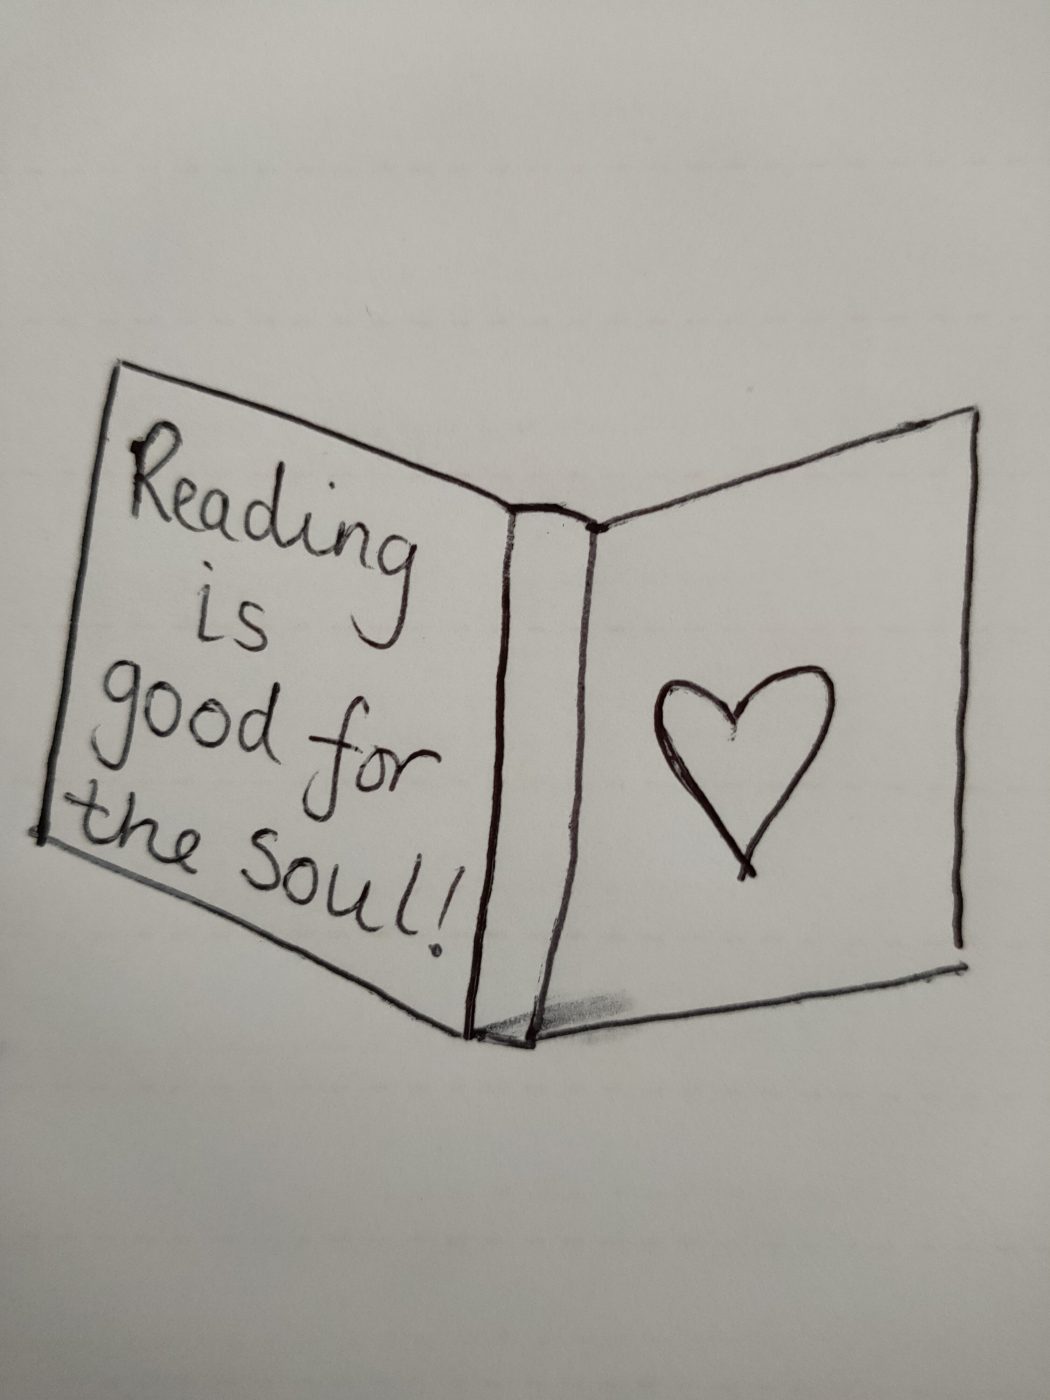 Reading
is
good for
the soul!